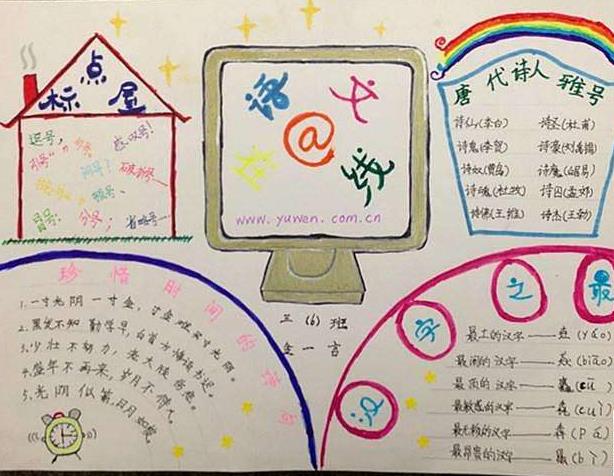 标点屋
逗号，
感叹号！
引号“”
问号？
破折号——
顿号、
冒号：
分号；
省略号……
语文
@
在线
www.yuwen.com.cn
三（6）班
唐代诗人雅号
诗仙(李白) 诗圣(杜甫)
诗鬼(李贺) 诗豪(刘禹锡)
诗奴(贾岛) 诗魔(白居易)
诗魂(杜牧) 诗囚(孟郊)
诗佛(王维) 诗杰(王勃)
珍惜时间的诗句
1.一寸光阴一寸金，寸金难买寸光阴。
2.黑发不知勤学早，白首方悔读书迟。
3.少壮不努力，老大徒伤悲。
4.盛年不再来，岁月不待人。
5.光阴似箭，日月如梭。
汉字之最
最土的汉字——垚(yáo)
最闹的汉字——猋(biāo)
最页的汉字——
最敏感的汉字——毳(cuì)
最无赖的汉字——(pā)
最昂贵的汉字——(bì)